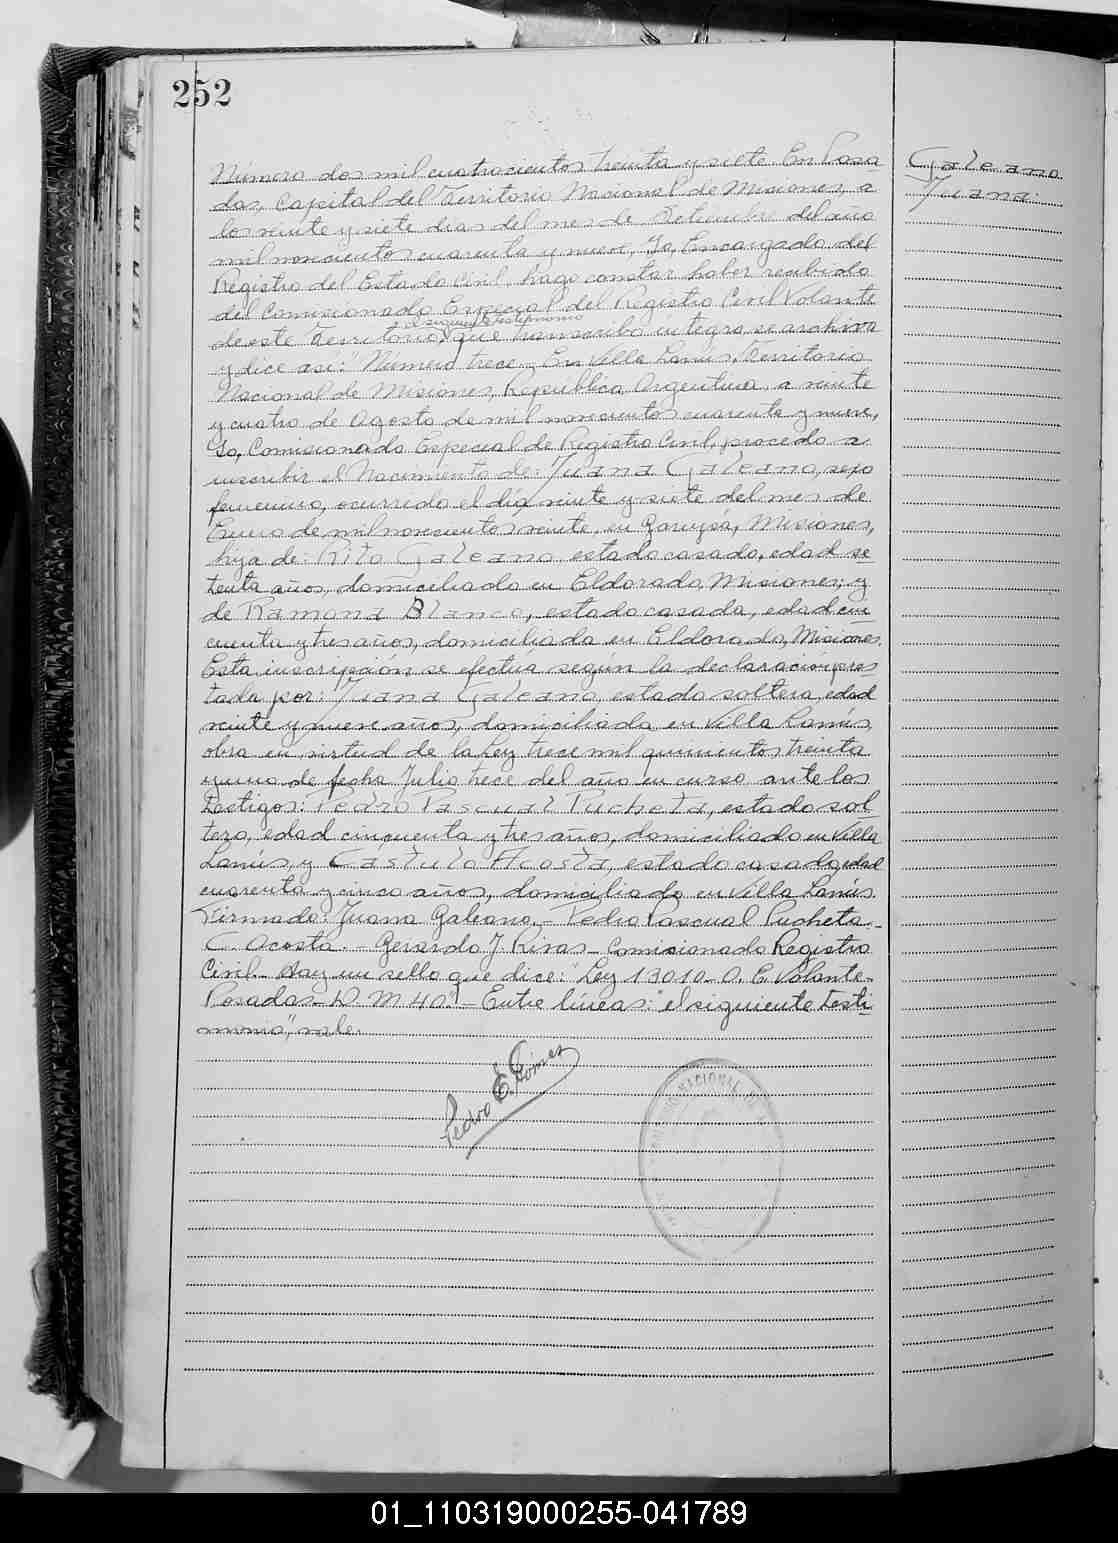 252
Galeano
Juana
Número dos mil cuatrocientos treinta y siete. En Posa-
das, Capital del Territorio Nacional de Misiones, a
los veinte y siete días del mes de Setiembre del año
mil novecientos cuarenta y nueve, Yo, Encargado del
Registro del Estado Civil, hago constar haber recibido
del Comisionado Especial del Registro Civil Volante
el siguiente testimonio
de este Territorio, que transcribo íntegro, se archiva
y dice así: "Número trece. En Villa Lanús, Territorio
Nacional de Misiones, República Argentina, a veinte
y cuatro de Agosto de mil novecientos cuarenta y nueve,
Yo, Comisionado Especial de Registro Civil, procedo a
inscribir el Nacimiento de: Juana Galeano, sexo
femenino, ocurrido el día veinte y siete del mes de
Enero de mil novecientos veinte, en Garupá, Misiones,
hija de: Rito Galeano, estado casado, edad se-
tenta años, domiciliado en Eldorado, Misiones; y
de Ramona Blanco, estado casada, edad cin-
cuenta y tres años, domiciliada en Eldorado, Misiones.
Esta inscripción se efectúa según la declaración pres-
tada por: Juana Galeano, estado soltera, edad
veinte y nueve años, domiciliada en Villa Lanús,
obra en virtud de la Ley trece mil quinientos treinta
y uno de fecha Julio trece del año en curso ante los
testigos: Pedro Pascual Pucheta, estado sol-
tero, edad cincuenta y tres años, domiciliado en Villa
Lanús, y Castulo Acosta, estado casado, edad
cuarenta y cinco años, domiciliado en Villa Lanús.
Firmado: Juana Galeano.- Pedro Pascual Pucheta.-
C. Acosta.- Gerardo J. Rivas- Comisionado Registro
Civil.- Hay un sello que dice: "Ley 13010- O. E. Volante-
Posadas- D. M. 40".- Entre líneas: "el siguiente testi-
monio", vale.
Pedro E. Gómez
NACIONAL DE
01_110319000255-041789